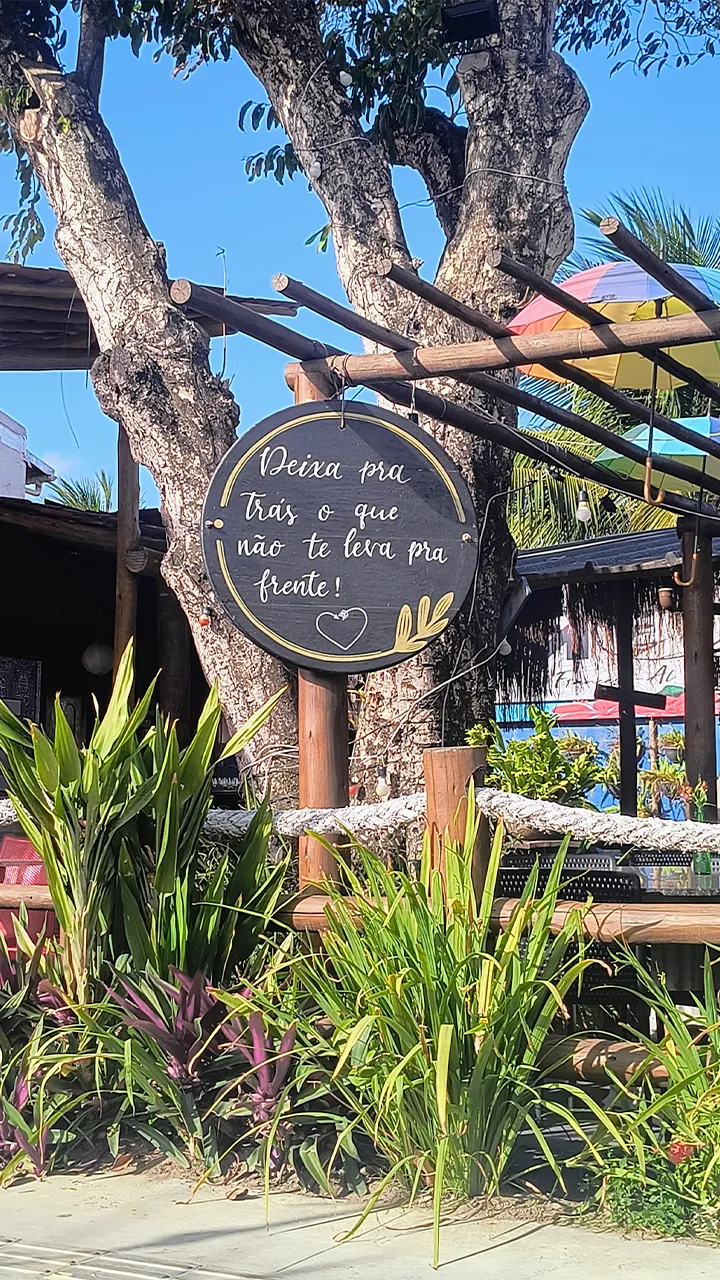 Deixa pra
Trás o que
não te leva pra
frente!